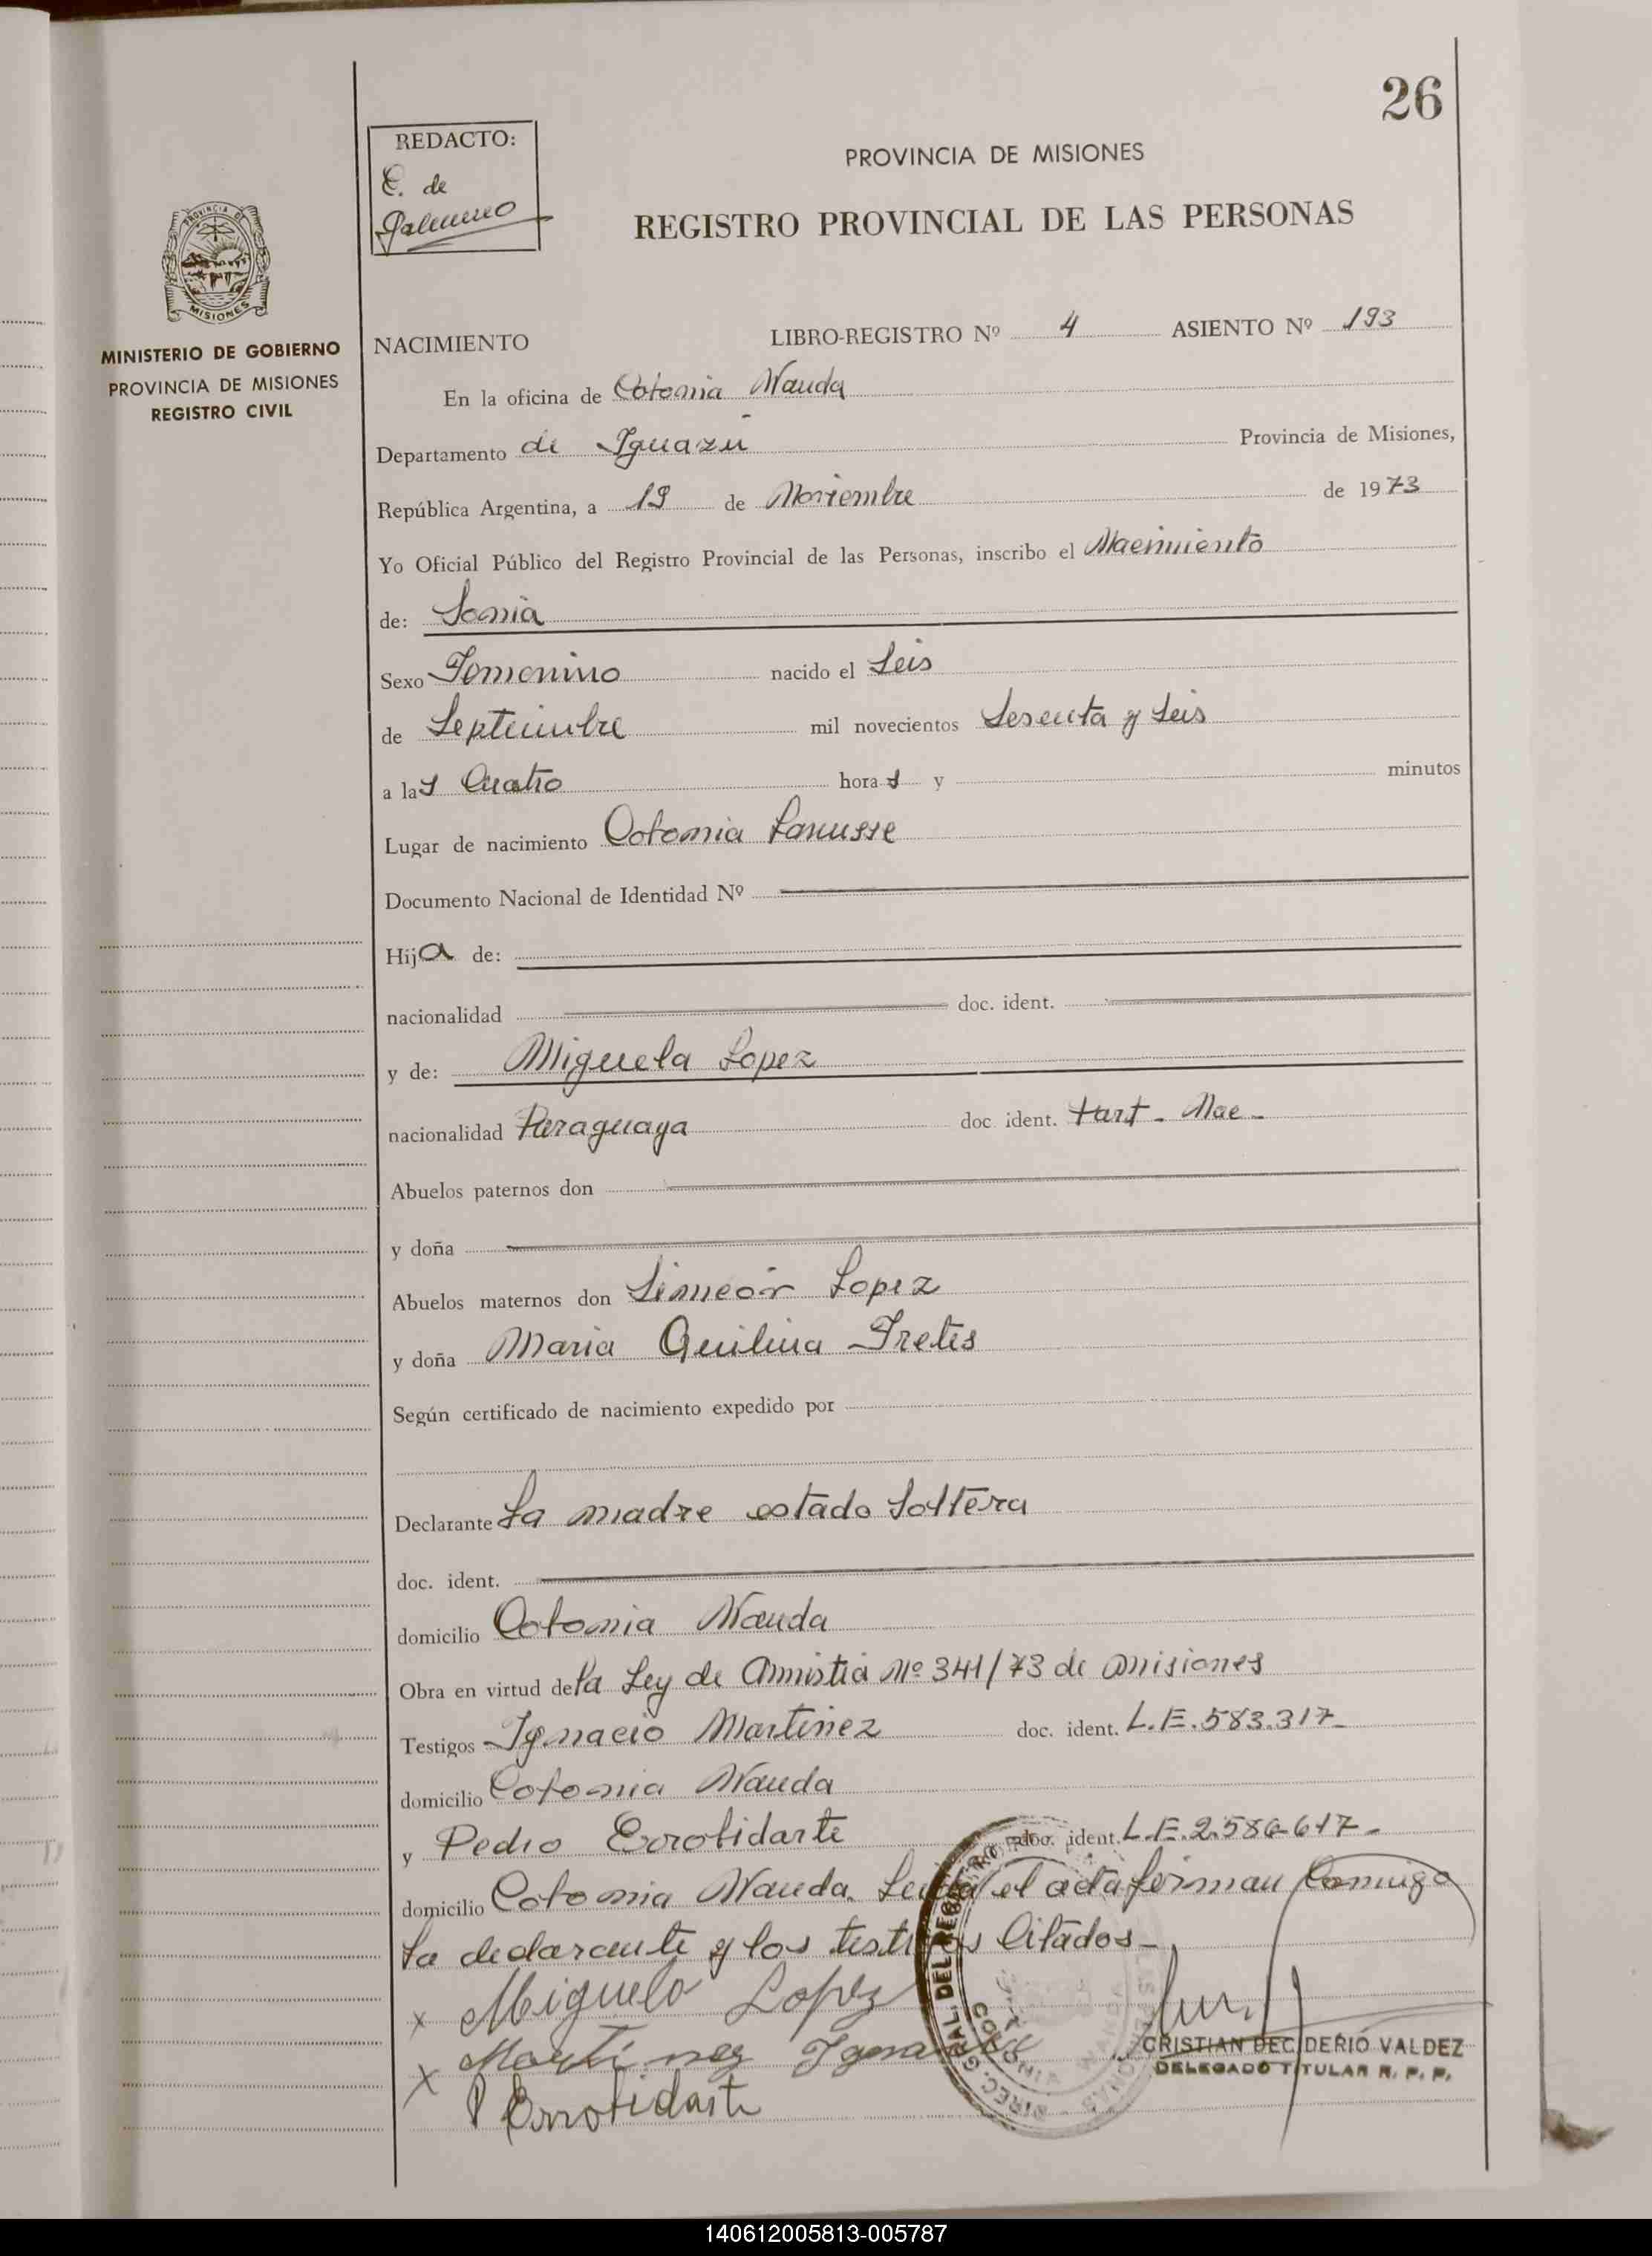 26
REDACTO:
E. de
PROVINCIA DE MISIONES
REGISTRO PROVINCIAL DE LAS PERSONAS
PROVINCIA DE
MISIONES
MINISTERIO DE GOBIERNO
PROVINCIA DE MISIONES
REGISTRO CIVIL
NACIMIENTO LIBRO-REGISTRO Nº 4 ASIENTO Nº 193
En la oficina de Colonia Wanda
Departamento de Iguazú Provincia de Misiones,
República Argentina, a 19 de Noviembre de 1973
Yo Oficial Público del Registro Provincial de las Personas, inscribo el Nacimiento
de: Sonia
Sexo Femenino nacido el Seis
de Septiembre mil novecientos Sesenta y Seis
a las Cuatro horas y minutos
Lugar de nacimiento Colonia Lanusse
Documento Nacional de Identidad Nº
Hija de:
nacionalidad doc. ident.
y de: Miguela Lopez
nacionalidad Paraguaya doc. ident. Part - Nac -
Abuelos paternos don
y doña
Abuelos maternos don Simeón Lopez
y doña Maria
Según certificado de nacimiento expedido por
Declarante La madre estado Soltera
doc. ident.
domicilio Colonia Wanda
Obra en virtud de la Ley de Amistia Nº 341/73 de Misiones
Testigos Ignacio Martinez doc. ident. L.E. 583.317-
domicilio Colonia Wanda
y Pedro Errolidarte doc. ident. L.E. 2.586-617-
domicilio Colonia Wanda. Leida el acta firman Conmigo
la declarante y los testigos Citados-
x Miguela Lopez
x Martinez Ignacio
P Errolidarte
CRISTIAN DECIDERIO VALDEZ
DELEGADO TITULAR R. P. P.
140612005813-005787